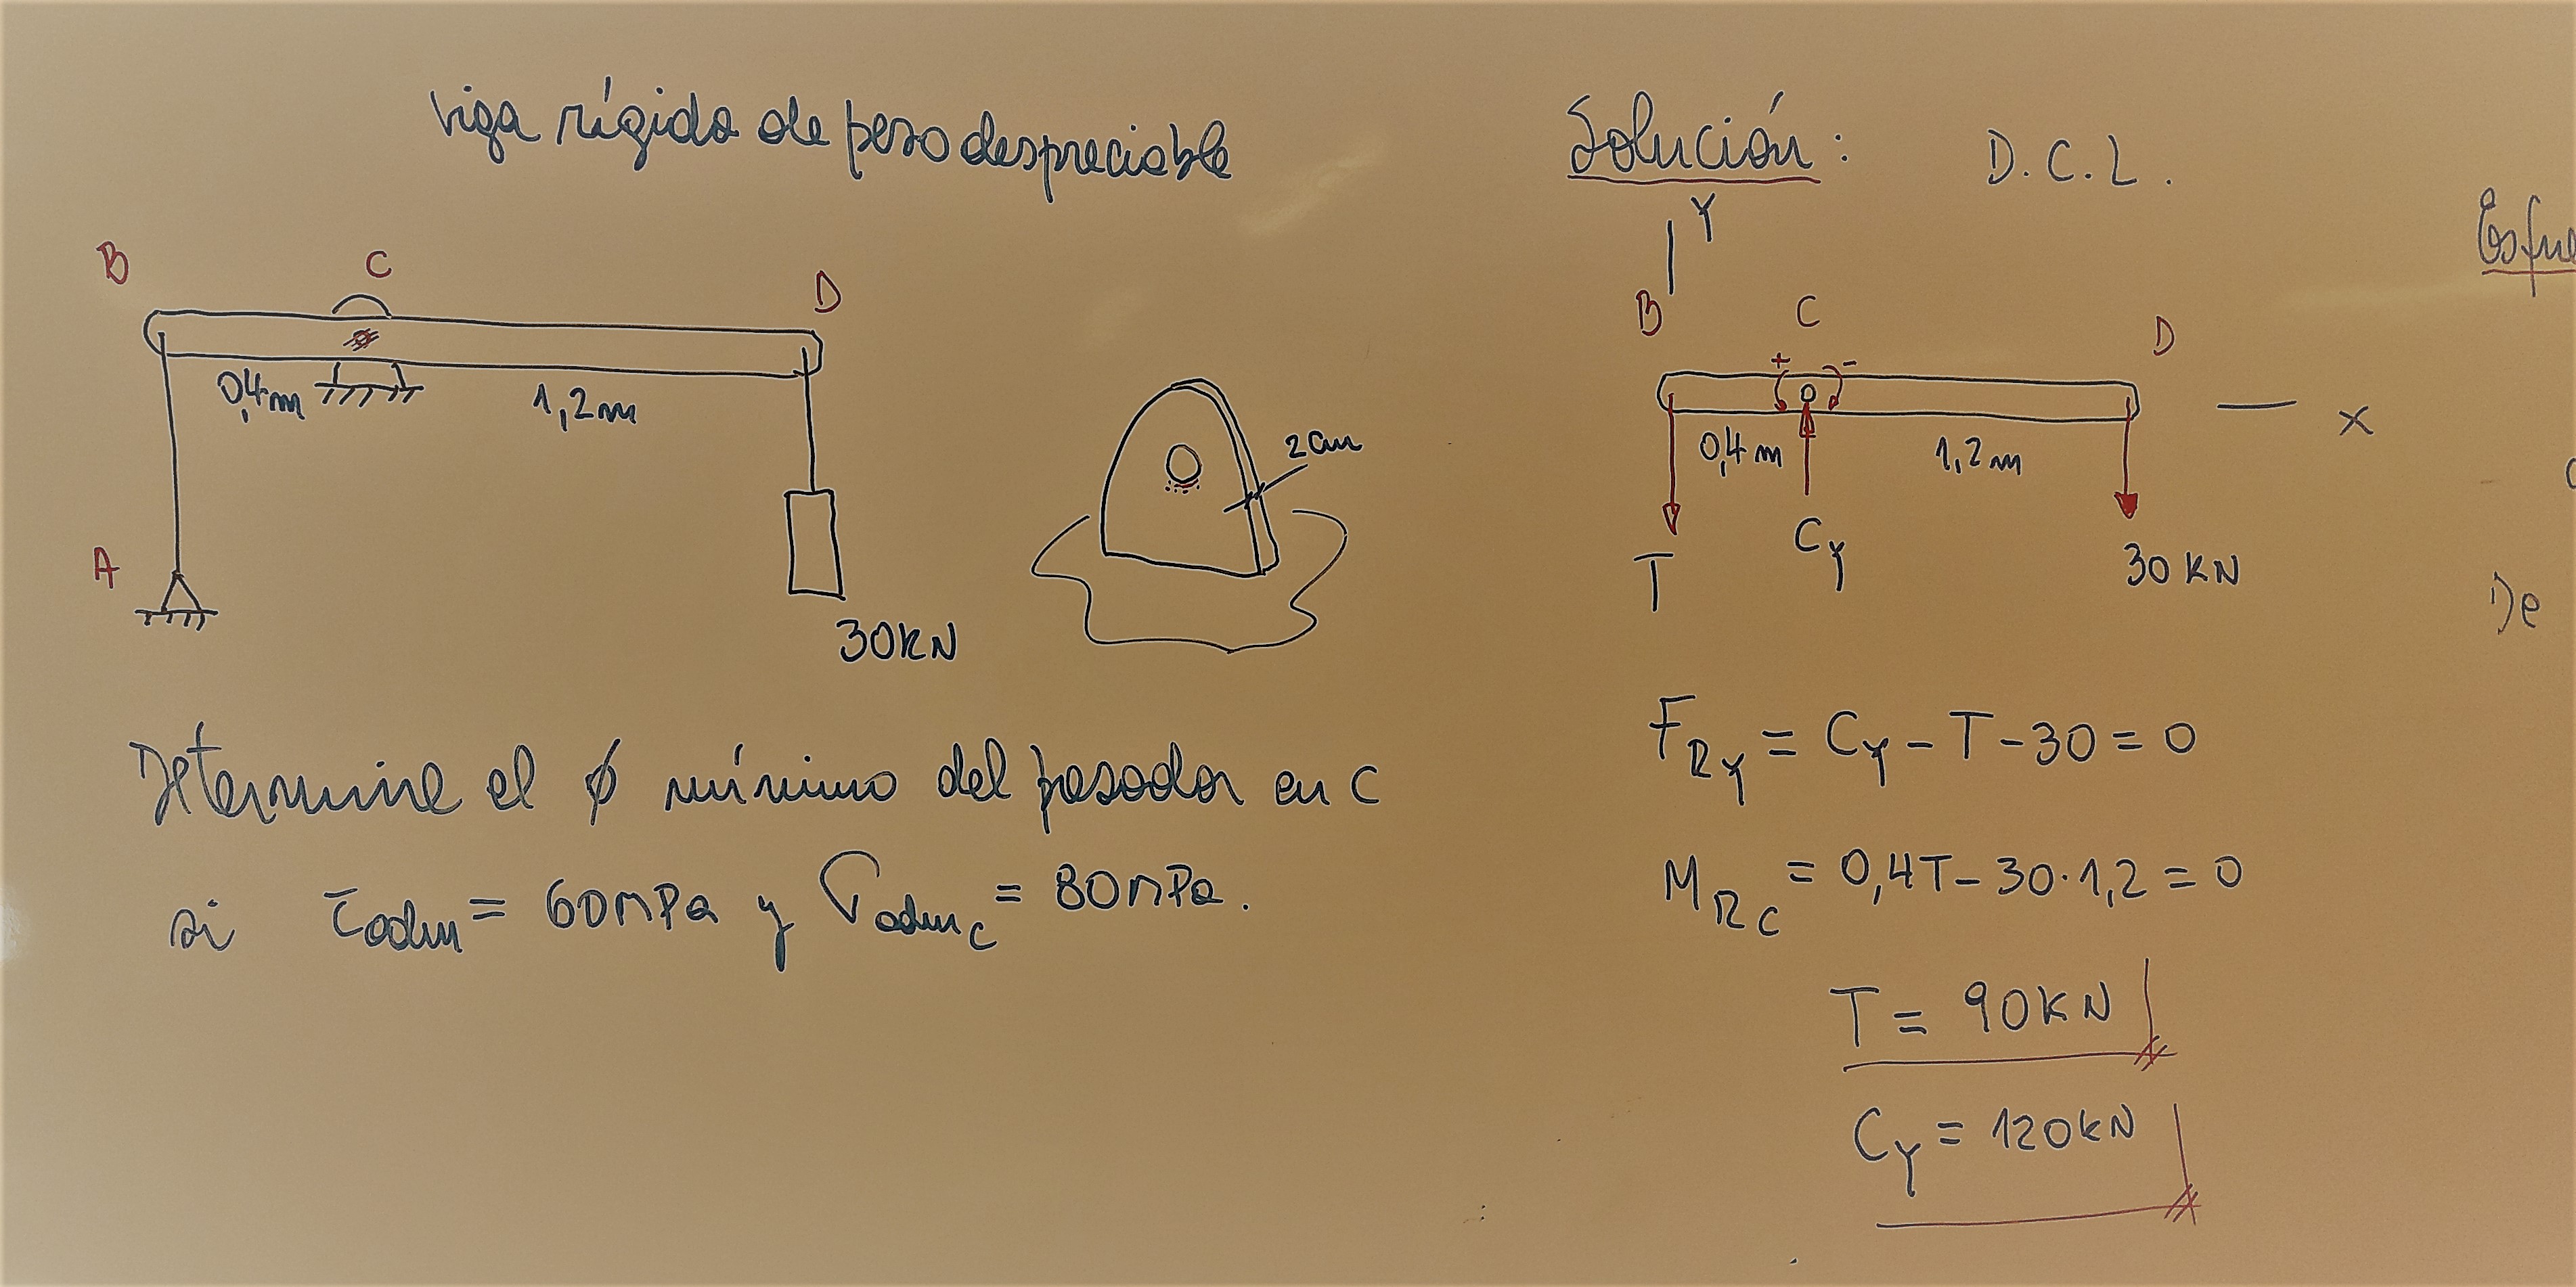 viga rígida de peso despreciable
B
C
D
0,4m
1,2m
A
30KN
2cm
Determine el ϕ mínimo del pasador en C
si τadm = 60MPa y σadmc = 80MPa.
Solución: D.C.L.
Y
B
C
D
+
-
0,4m
1,2m
x
T
CY
30KN
FRY = CY - T - 30 = 0
MRC = 0,4T - 30·1,2 = 0
T = 90KN
CY = 120KN
De